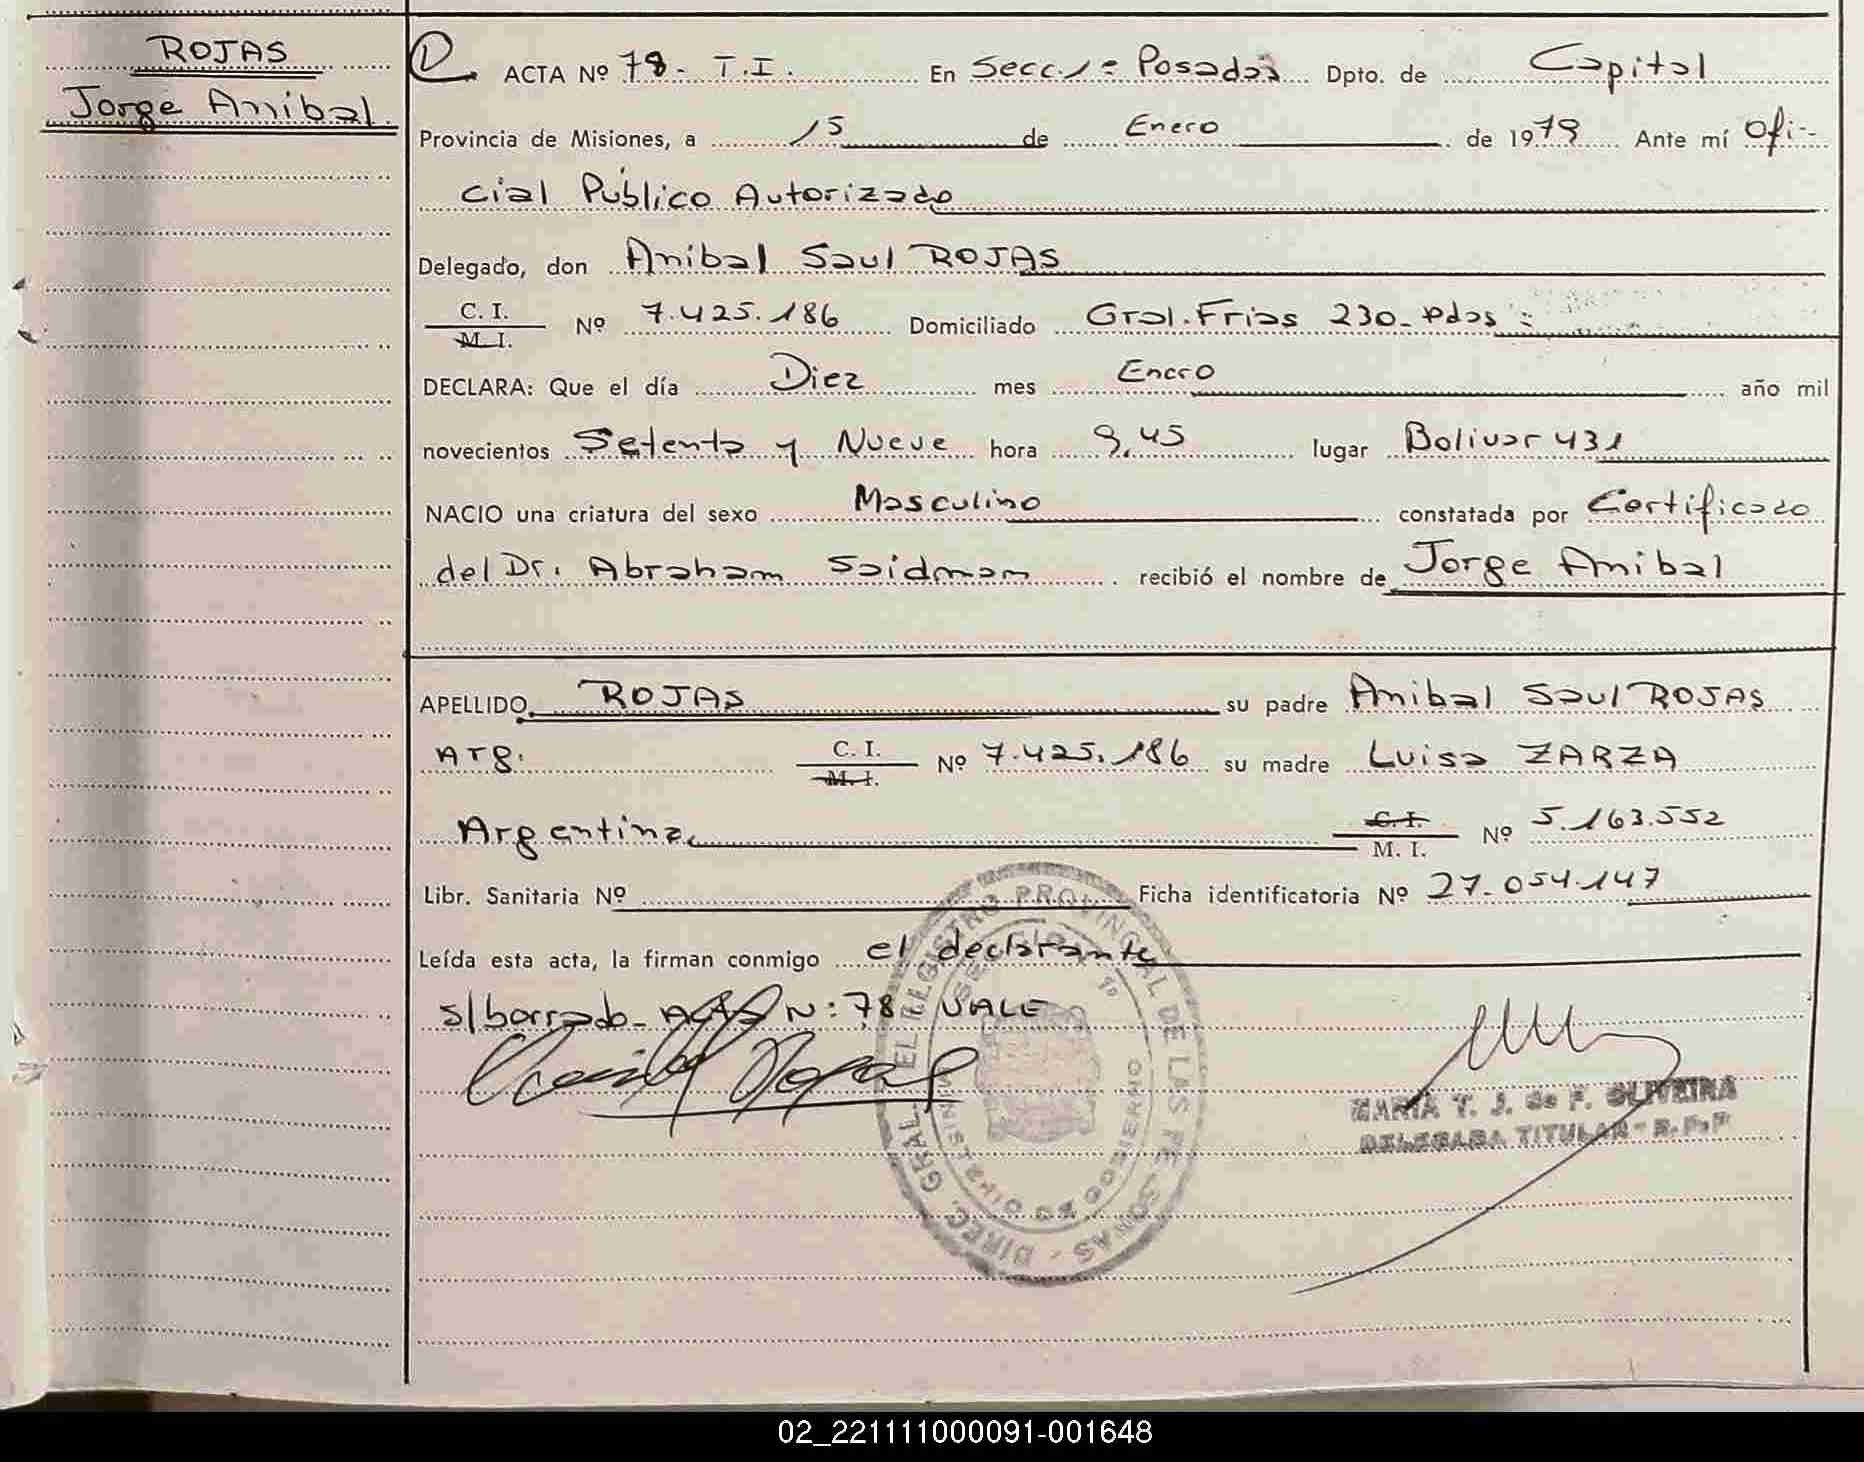 ROJAS
Jorge Anibal
D
ACTA Nº 78- T.I. En Secc. 1º Posadas Dpto. de Capital
Provincia de Misiones, a 15 de Enero de 1979 Ante mí Ofi-
cial Público Autorizado
Delegado, don Anibal Saul ROJAS
C. I.
M. I.
Nº 7.425.186 Domiciliado Gral. Frias 230- Pdas:
DECLARA: Que el día Diez mes Enero año mil
novecientos Setenta y Nueve hora 9,45 lugar Bolivar 431
NACIO una criatura del sexo Masculino constatada por Certificado
del Dr. Abraham Saidman recibió el nombre de Jorge Anibal
APELLIDO ROJAS su padre Anibal Saul ROJAS
Arg. C. I. Nº 7.425.186 su madre Luisa ZARZA
M. I.
Argentina C. I. Nº 5.163.552
M. I.
Libr. Sanitaria Nº Ficha identificatoria Nº 27-054.147
Leída esta acta, la firman conmigo el declarante
s/borrado- Acta N: 78 VALE
Anibal Rojas
MARIA T. J. de F. OLIVEIRA
DELEGADA TITULAR - R.P.P
DIREC. GRAL. EL REGISTRO PROVINCIAL DE LAS PERSONAS
SECCION 1º
MINISTERIO DE GOBIERNO
02_221111000091-001648